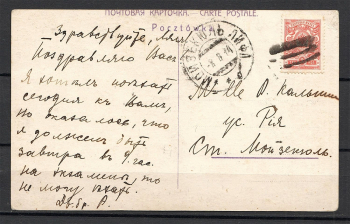 ПОЧТОВАЯ КАРТОЧКА. – CARTE POSTALE.
Pocztówka
Здравствуйте,
Поздравляю Вас
Я хотѣлъ поѣхать
сегодня къ Вамъ,
но оказалось, что
я долженъ быть
завтра въ 9 час.
на экзаменѣ, то
не могу ѣхать.
M-lle О. Кальнинъ
ус. Рія
Ст. Мойзекюль